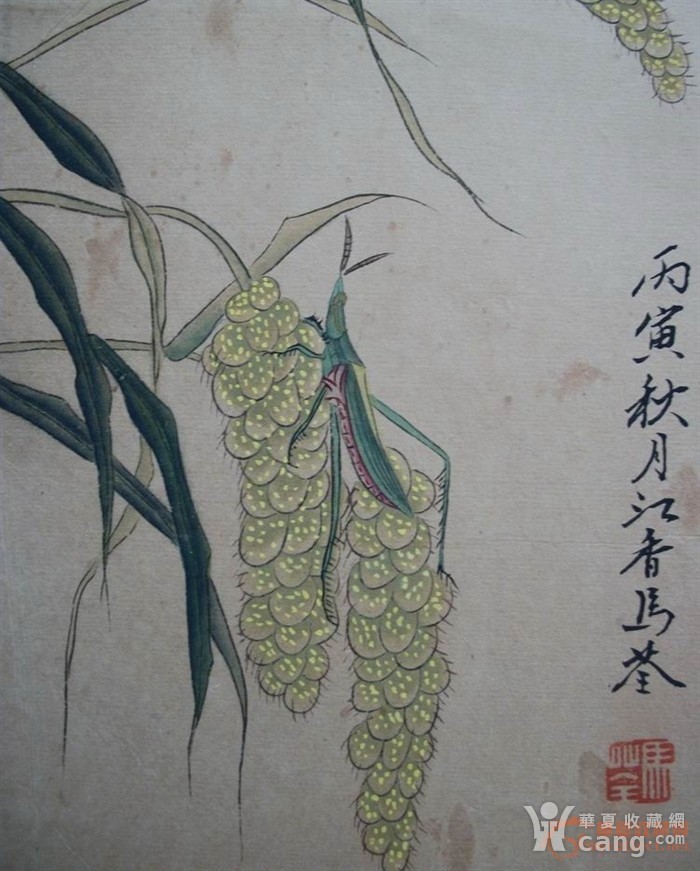 丙寅秋月江香馬荃
馬荃
華夏收藏網
cang.com